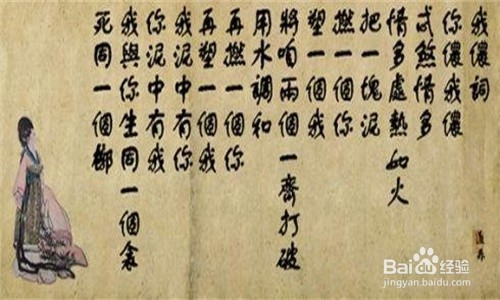 我儂詞
你儂我儂
忒煞情多
情多處熱如火
把一塊泥
撚一個你
塑一個我
將咱兩個一齊打破
用水調和
再撚一個你
再塑一個我
我泥中有你
你泥中有我
我與你生同一個衾
死同一個槨
Baidu 经验
jingyan.baidu.com